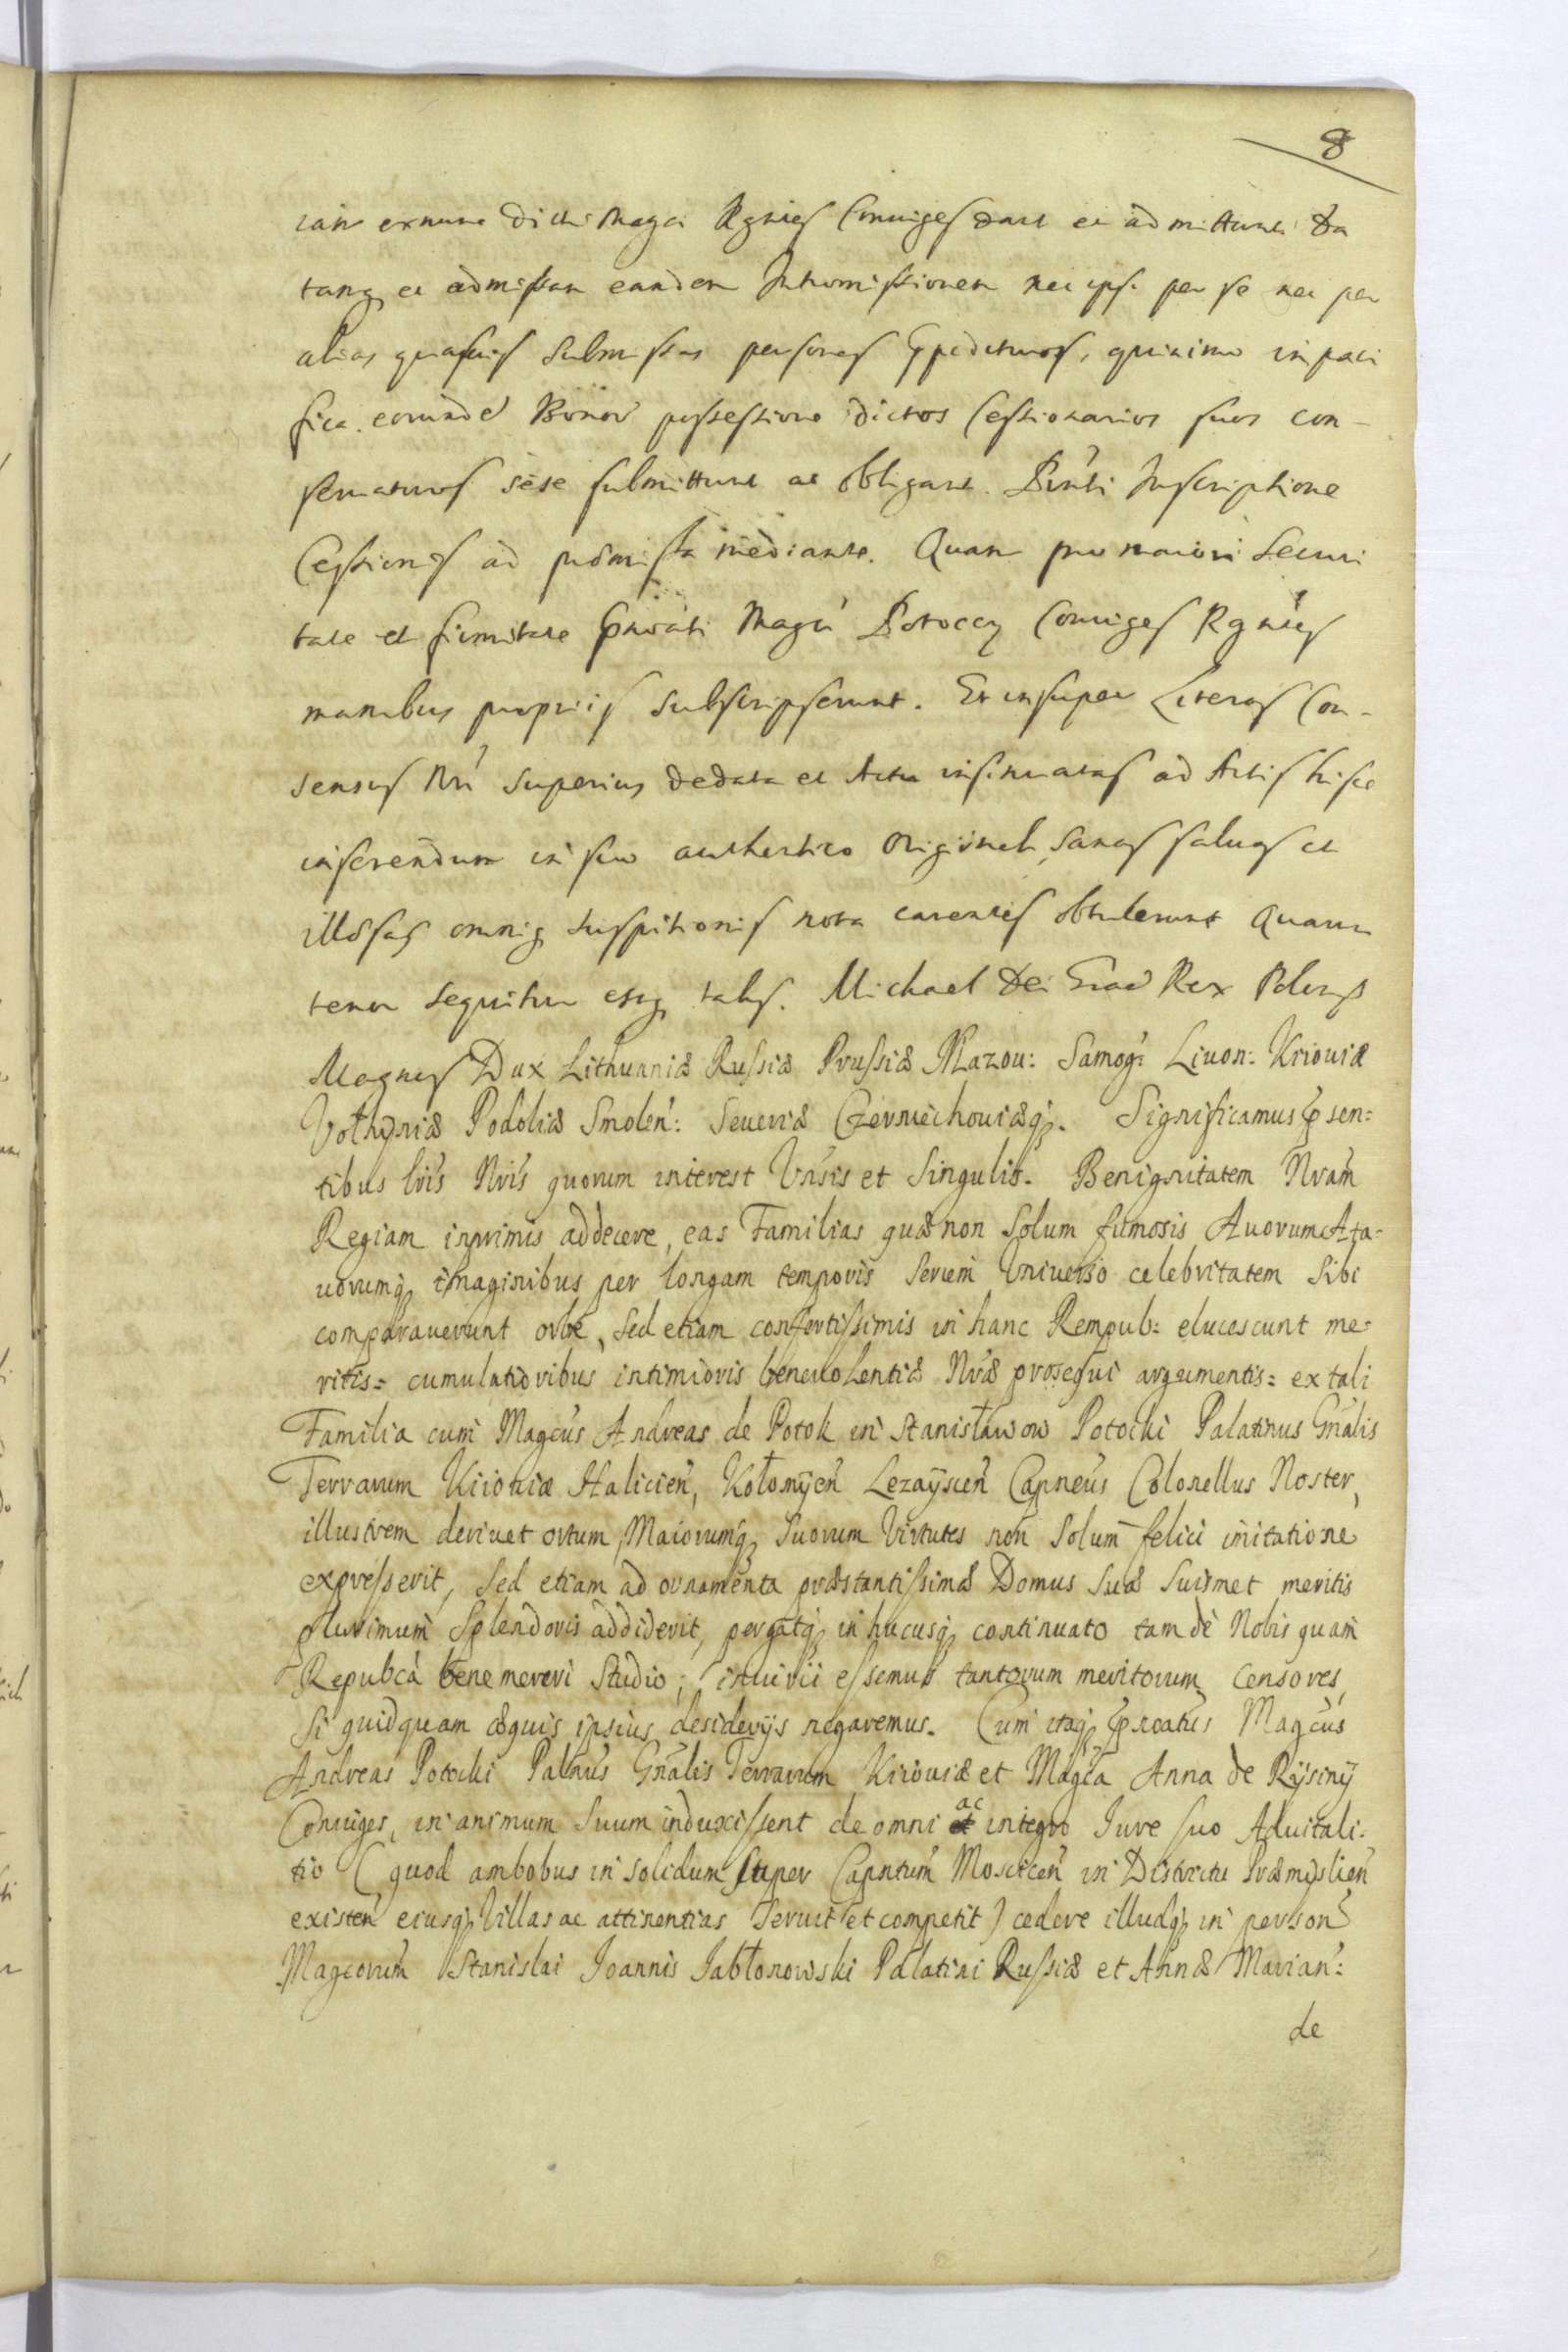 8
ian exnunc dicti Magci Rgnies Coniuges dant et admittunt Da
tamq et admissam eandem Intromissionem nec ipsi per se nec per
alias quasuis submissas personas Impedituros, quinimo in paci
fica eorunde Bonoru possessione dictos Cessionarios suos con-
seruaturos sese submittunt ac obligant. Pnti Inscriptione
Cessionis ad præmissa mediante. Quam pro maiori Securi
tate et firmitate Pnoati Magci Potoccy Coniuges Rgnies
manibus proprijs subscripserunt. Et insuper Literas Con-
sensus Nri superius de data et Actu insinuatas ad Actis hisce
inserendum in suo authentico Originali sanas saluas et
illæsas omniq suspitionis nota carentes obtulerunt Quarum
tenor sequitur estq talis. Michael Dei Gra Rex Poloniæ
Magnus Dux Lithuaniæ Russiæ Prussiæ Mazou: Samog: Liuon: Kiiouiæ
Vołhyniæ Podoliæ Smolen: Seueriæ Czerniechouiæq. Significamus Pæsen=
tibus lris Nris quorum interest Vnsis et Singulis. Benignitatem Nram
Regiam inprimis addecere, eas Familias quæ non Solum fumosis Auorum Ata-
uorumq imaginibus per longam temporis Seriem Vniuerso celebritatem Sibi
comparauerunt orbe, Sed etiam confertissimis in hanc Rempub: elucescunt me-
ritis= cumulatioribus intimioris beneuolentiæ Nræ prosequi argumentis= ex tali
Familia cum Magcus Andreas de Potok in Stanisławow Potocki Palatinus Gnalis
Terrarum Kiiouiæ Halicien, Kołomyen Lezayscen Capneus Colonellus Noster,
illustrem deriuet ortum, Maiorumq Suorum Virtutes non Solum felici imitatione
expresserit, Sed etiam ad ornamenta præstantissimæ Domus Suæ Suismet meritis
plurimum Splendoris addiderit, pergatq in hucusq continuato tam de Nobis quam
Repubca bene mereri Studio; iniurii essemus tantorum meritorum Censores,
Si quidquam æquis ipsius desiderijs negaremus. Cum itaq Prœatus Magcus
Andreas Potocki Palnus Gnalis Terrarum Kiiouiæ et Magca Anna de Rysiny
Coniuges, in animum Suum induxissent de omni et ac integro Iure suo Aduitali-
tio (quod ambobus in Solidum Super Capntum Moscicen in Districtu Præmyslien
existen eiusq Villas ac attinentias Seruit et competit) cedere illudq in person
Magcorum Stanislai Ioannis Jabłonowski Palatini Russiæ et Annæ Marian:
de